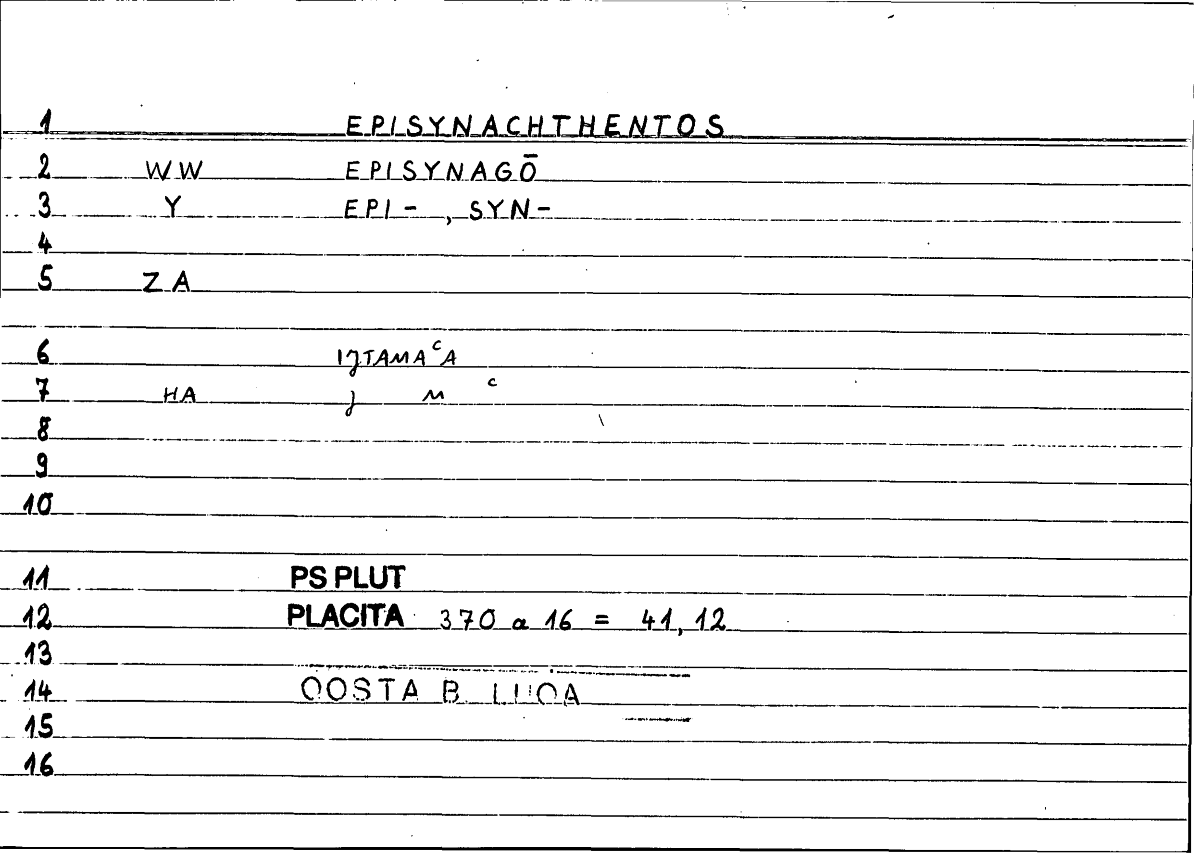 1 EPISYNACHTHENTOS
2 WW EPISYNAGŌ
3 Y EPI- , SYN-
4
5 ZA
6 IʒTAMAᶜA
7 HA ʒ M ᶜ
8
9
10
11 PS PLUT
12 PLACITA 370 a 16 = 41,12
13
14 QOSTA B. LUQA
15
16